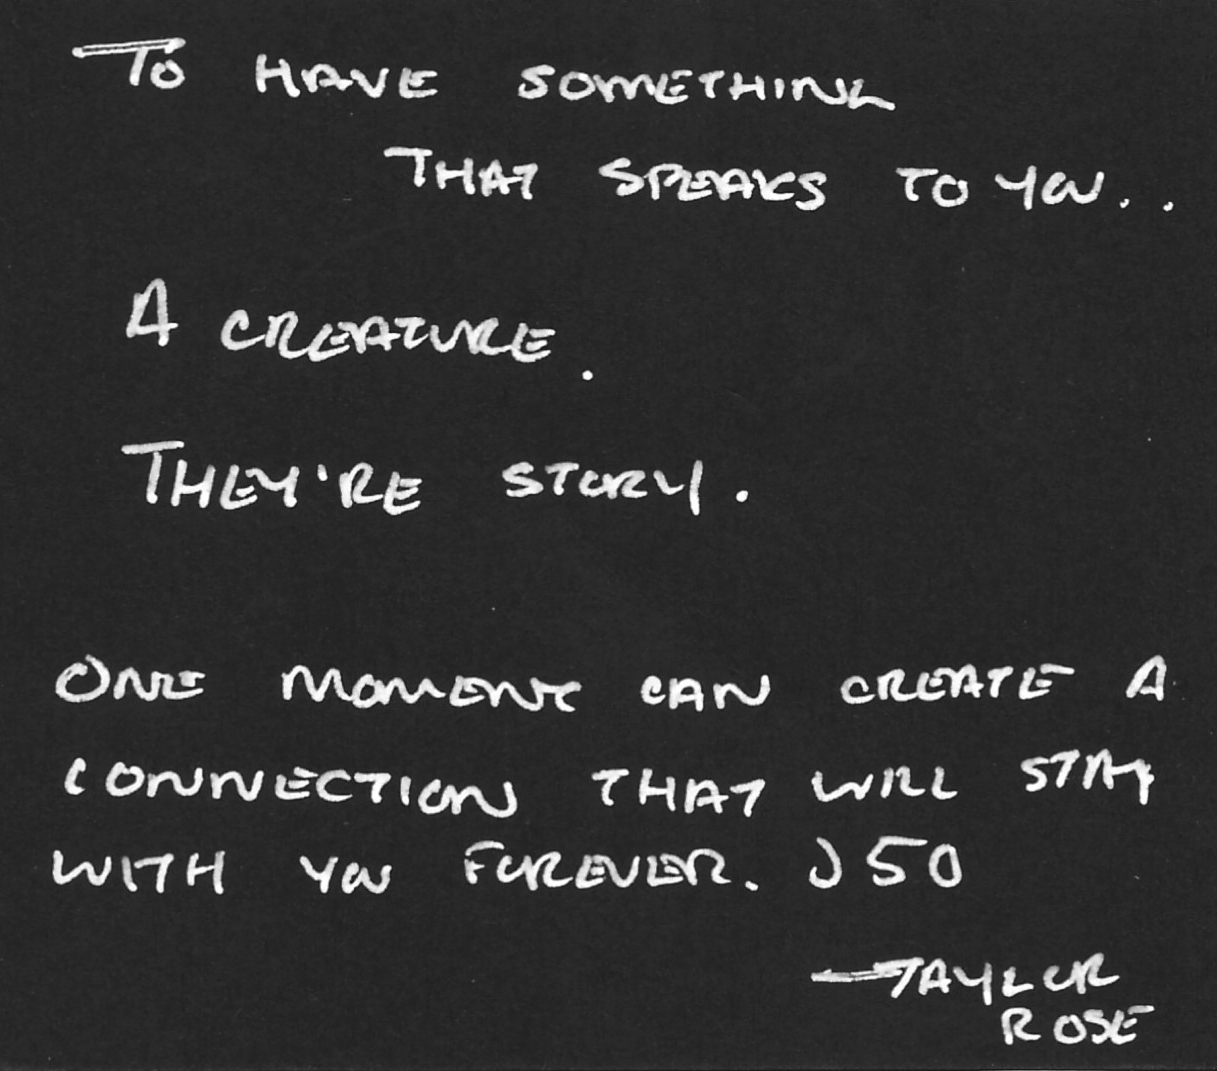 TO HAVE SOMETHING
THAT SPEAKS TO YOU..
A CREATURE.
THEY'RE STORY.
ONE MOMENT CAN CREATE A
CONNECTION THAT WILL STAY
WITH YOU FOREVER. J50
—TAYLOR
ROSE